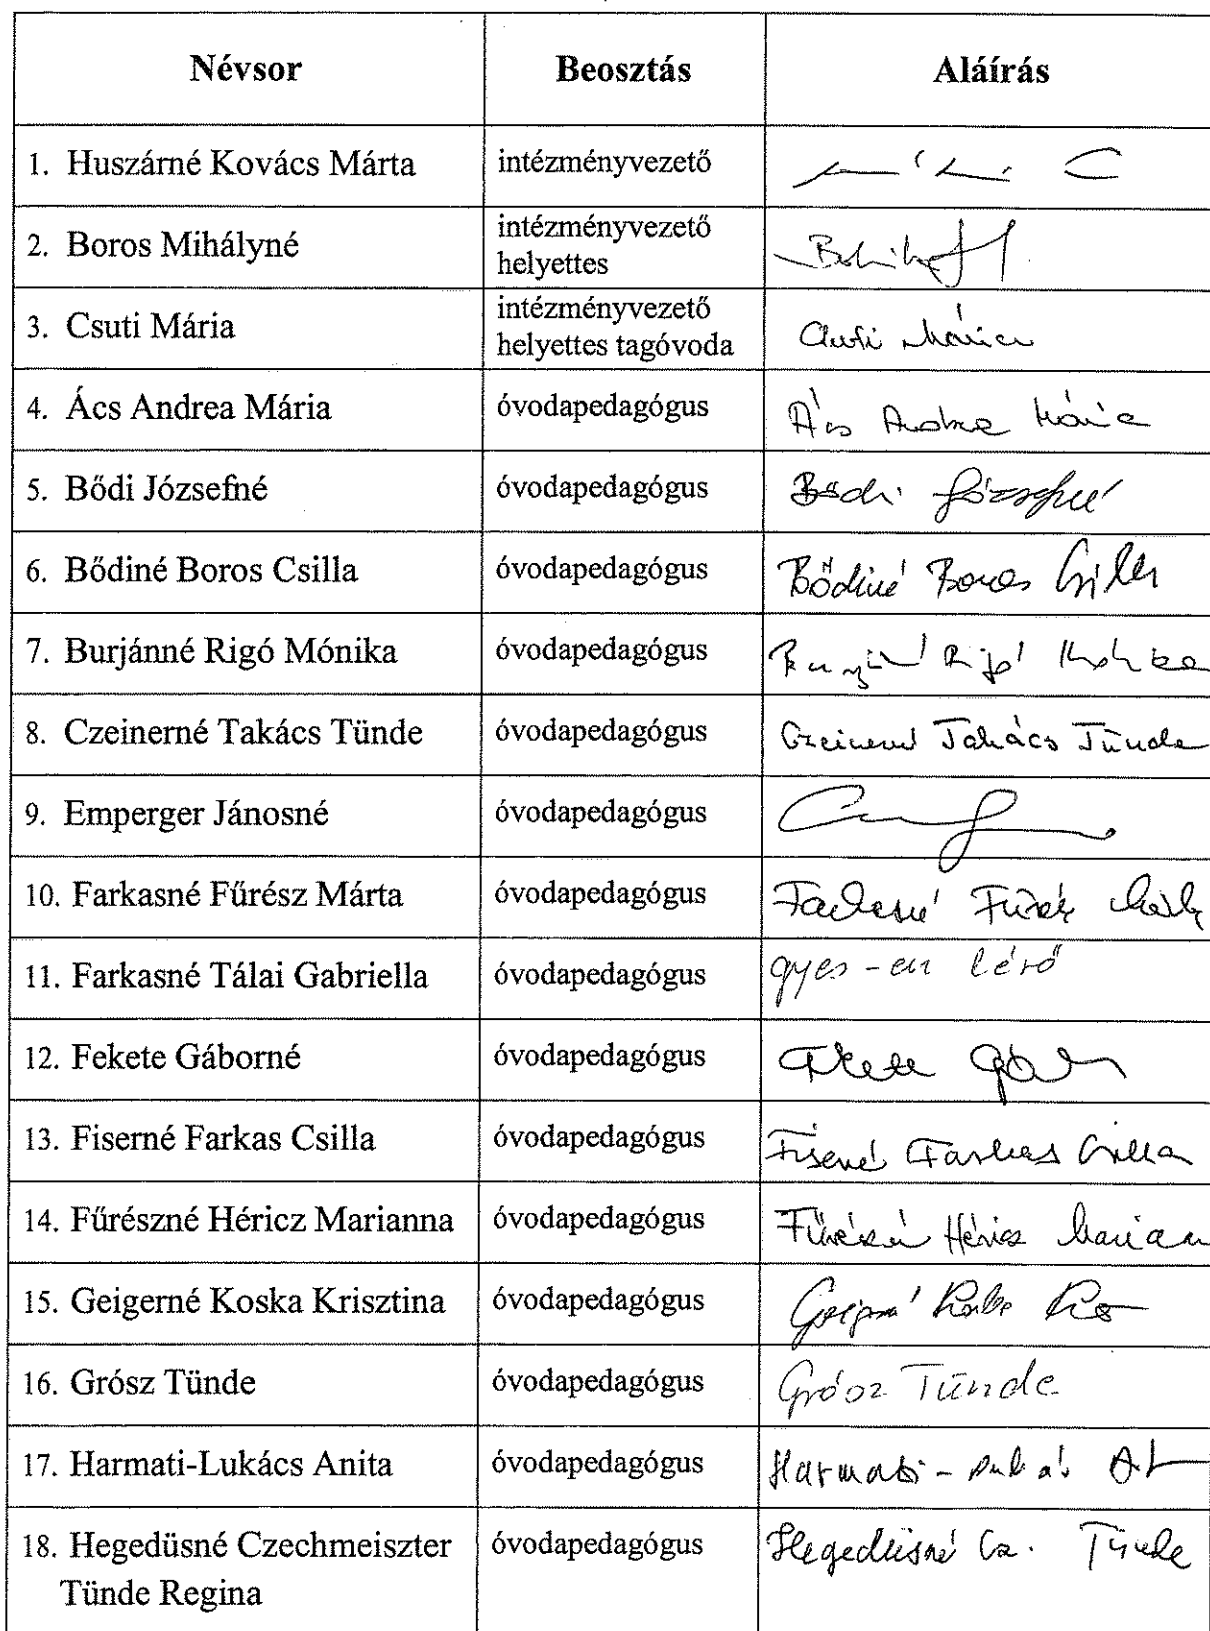 Névsor Beosztás Aláírás
1. Huszárné Kovács Márta intézményvezető
2. Boros Mihályné intézményvezető
helyettes
3. Csuti Mária intézményvezető
helyettes tagóvoda Csuti Mária
4. Ács Andrea Mária óvodapedagógus Ács Andrea Mária
5. Bődi Józsefné óvodapedagógus Bődi Józsefné
6. Bődiné Boros Csilla óvodapedagógus Bődiné Boros Csilla
7. Burjánné Rigó Mónika óvodapedagógus Rigó Mónika
8. Czeinerné Takács Tünde óvodapedagógus Czeinerné Takács Tünde
9. Emperger Jánosné óvodapedagógus
10. Farkasné Fűrész Márta óvodapedagógus Farkasné Fűrész Márta
11. Farkasné Tálai Gabriella óvodapedagógus gyes-en lévő
12. Fekete Gáborné óvodapedagógus Fekete
13. Fiserné Farkas Csilla óvodapedagógus Fiserné Farkas Csilla
14. Fűrészné Héricz Marianna óvodapedagógus Fűrészné Héricz
15. Geigerné Koska Krisztina óvodapedagógus
16. Grósz Tünde óvodapedagógus Grósz Tünde
17. Harmati-Lukács Anita óvodapedagógus
18. Hegedüsné Czechmeiszter óvodapedagógus Hegedüsné Cz. Tünde
Tünde Regina